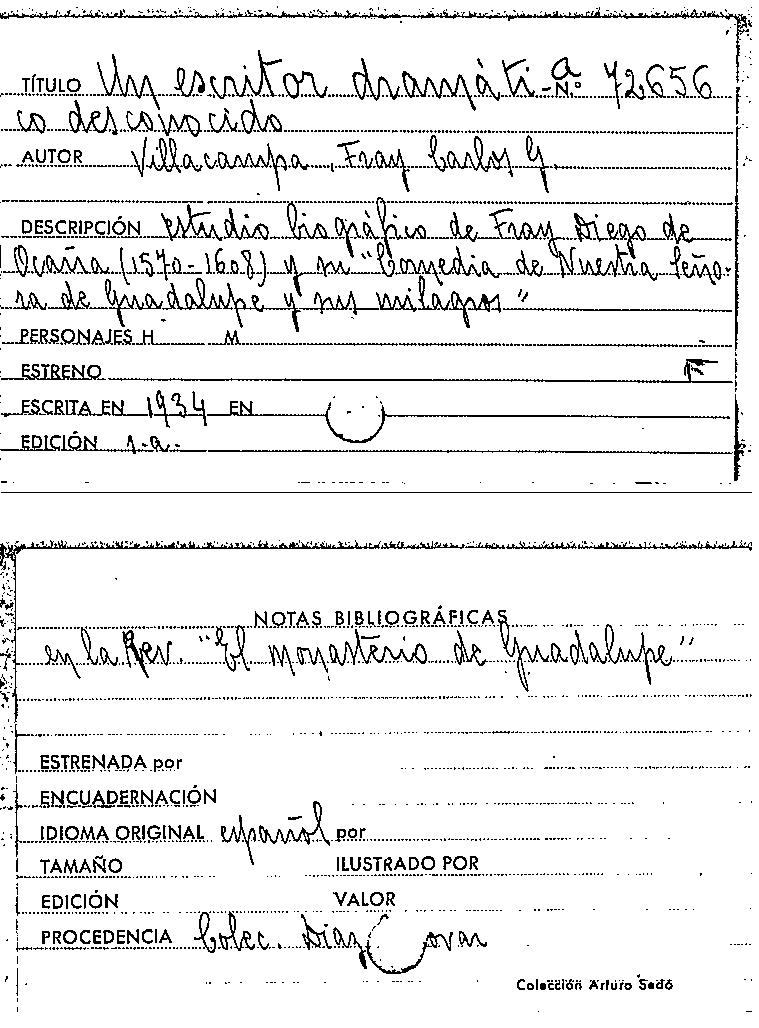 TÍTULO Un escritor dramáti- a N.º 72656
co desconocido
AUTOR Villacampa, Fray Carlos G.
DESCRIPCIÓN Estudio biográfico de Fray Diego de
Ocaña (1570-1608) y su "Comedia de Nuestra Seño-
ra de Guadalupe y sus milagros"
PERSONAJES H M
ESTRENO
ESCRITA EN 1934 EN
EDICIÓN 1.a.
NOTAS BIBLIOGRÁFICAS
en la Rev. "El monasterio de Guadalupe"
ESTRENADA por
ENCUADERNACIÓN
IDIOMA ORIGINAL español por
TAMAÑO ILUSTRADO POR
EDICIÓN VALOR
PROCEDENCIA Colec. Díaz
Colección Arturo Sedó